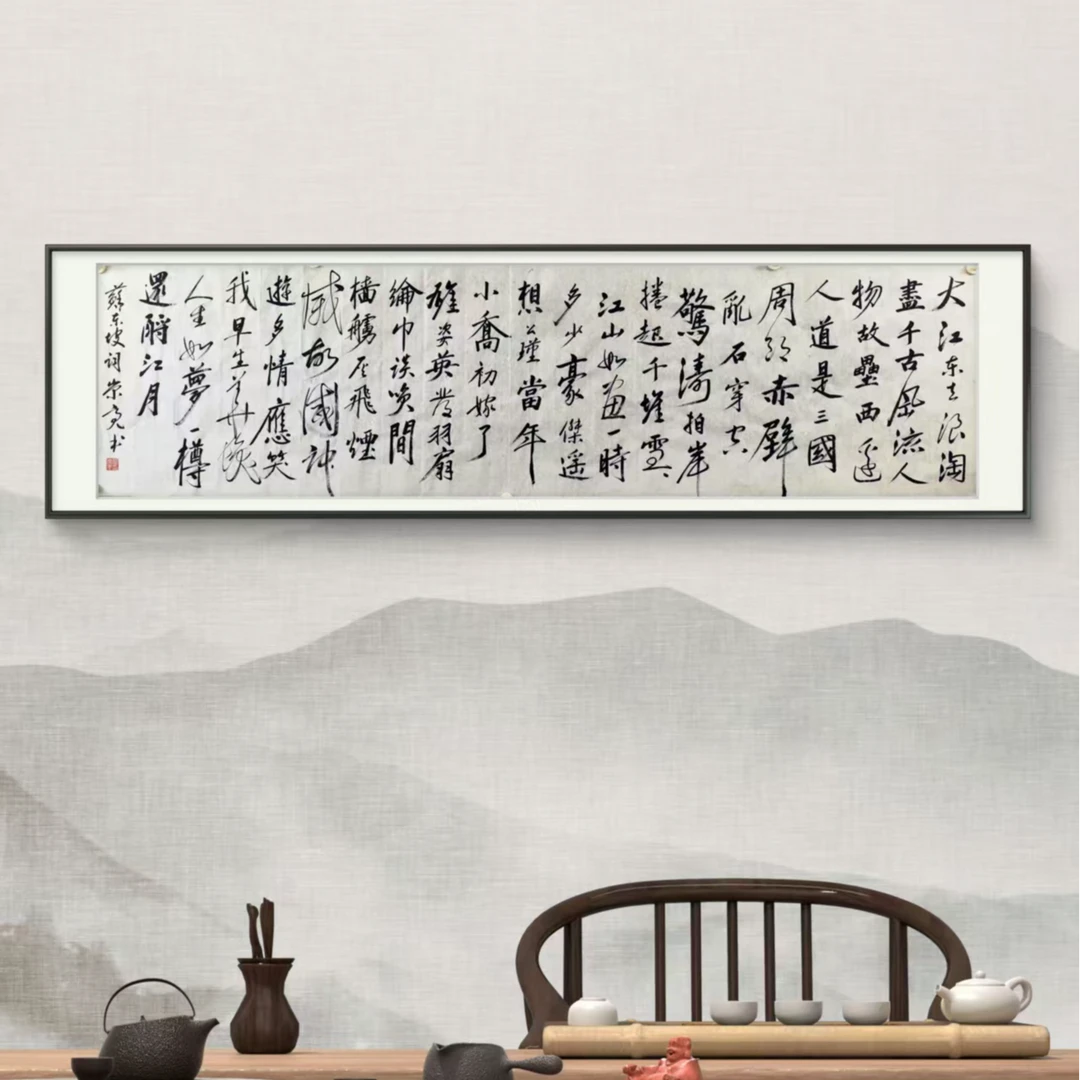 大江东去浪淘
盡千古風流人
物故壘西邊
人道是三國
周郎赤壁
亂石穿空
驚濤拍岸
捲起千堆雪
江山如画一時
多少豪傑遥
想公瑾當年
小喬初嫁了
雄姿英发羽扇
綸巾談笑間
樯艣灰飛煙
滅故國神
遊多情應笑
我早生华发
人生如夢一樽
還酹江月
蘇东坡词 崇亮书